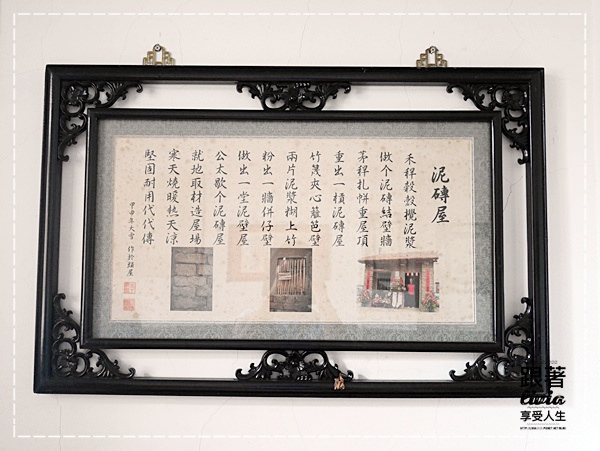 泥磚屋
禾稈榖殼攪泥漿
做个泥磚結壁牆
茅稈扎栟重屋頂
重出一槓泥磚屋
竹篾夾心籬笆壁
兩片泥漿糊上竹
粉出一牆併仔壁
做出一堂泥壁屋
公太歇个泥磚屋
就地取材造屋場
寒天燒暖熱天涼
堅固耐用代代傳
甲申年大雪 作於穎屋
跟著
livia
享受人生